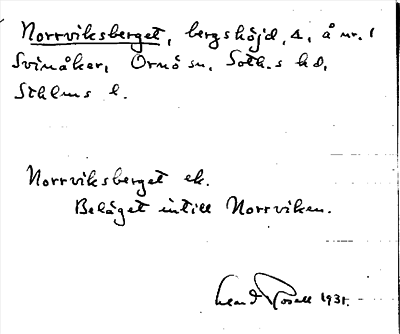 Norrviksberget, bergshöjd, 4, å nr. 1
Svinåker, Ornö sn, Soth.s hd,
Sthlms l.
Norrviksberget ek.
Beläget intill Norrviken.
1931.